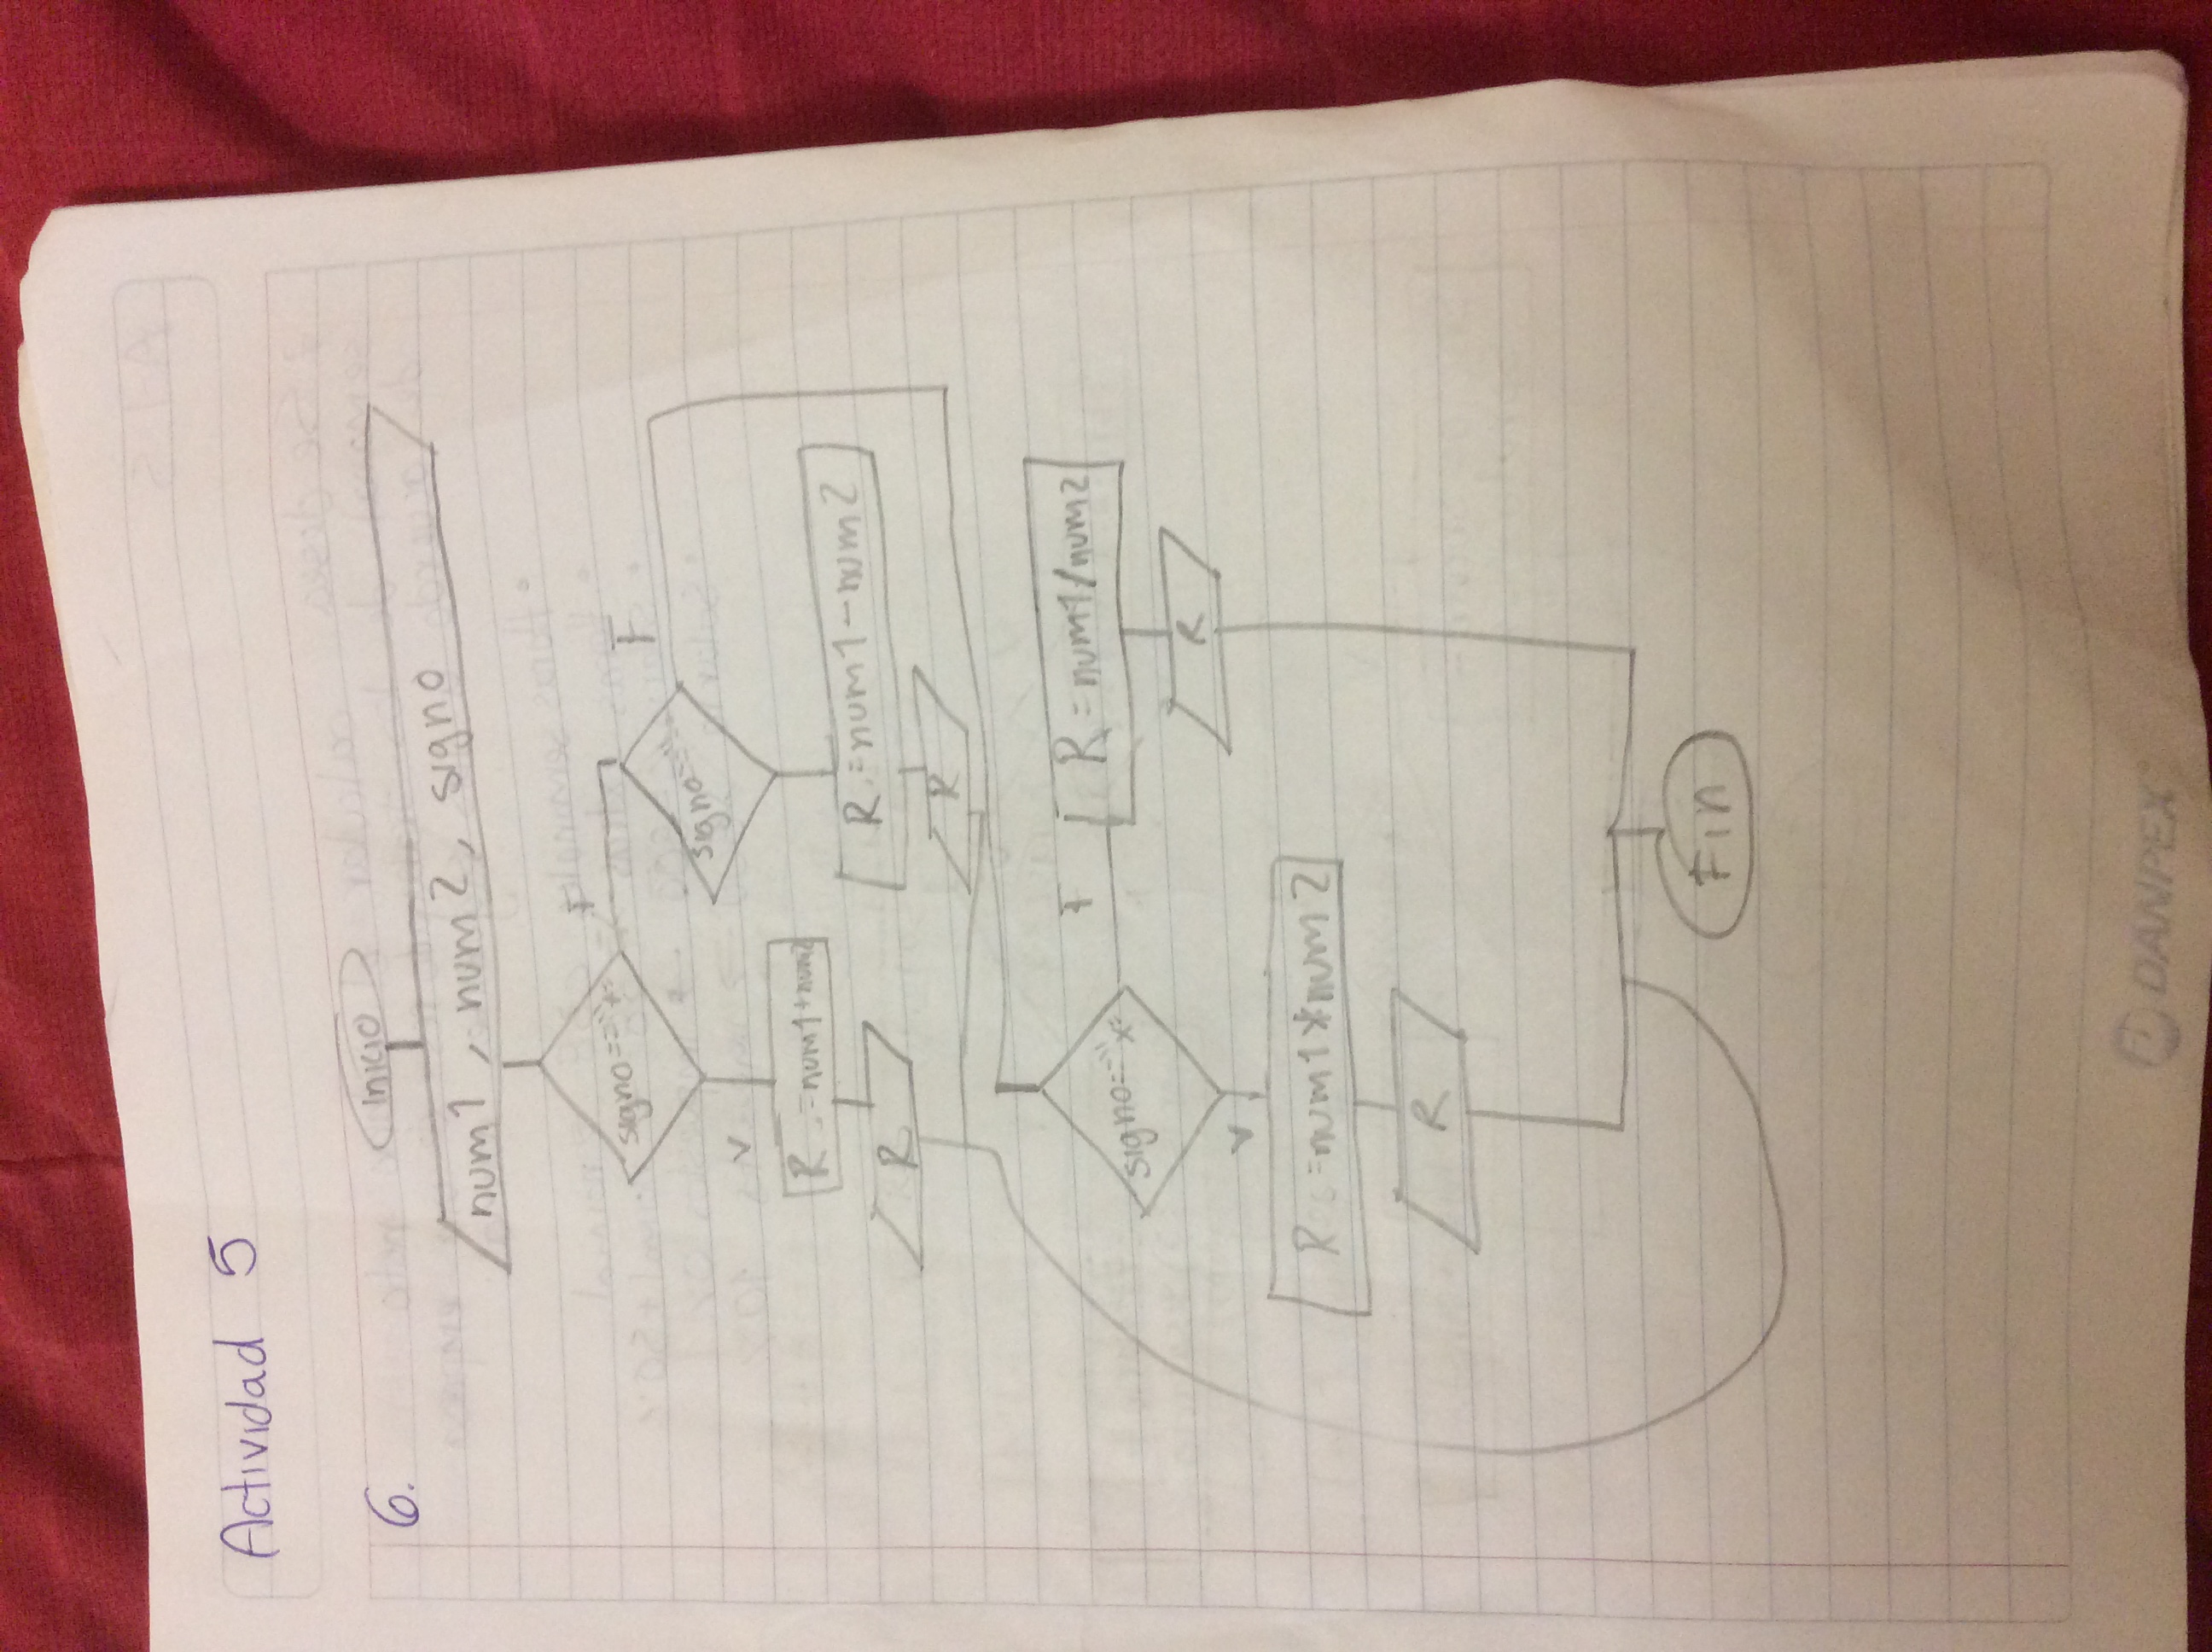 Actividad 5
6.
Inicio
num1, num2, signo
signo=="+"
F
signo=="-"
F
V
R=num1+num2
R=num1-num2
R
R
signo=="*"
F
R=num1/num2
V
R
R=num1*num2
R
Fin
DANPEX